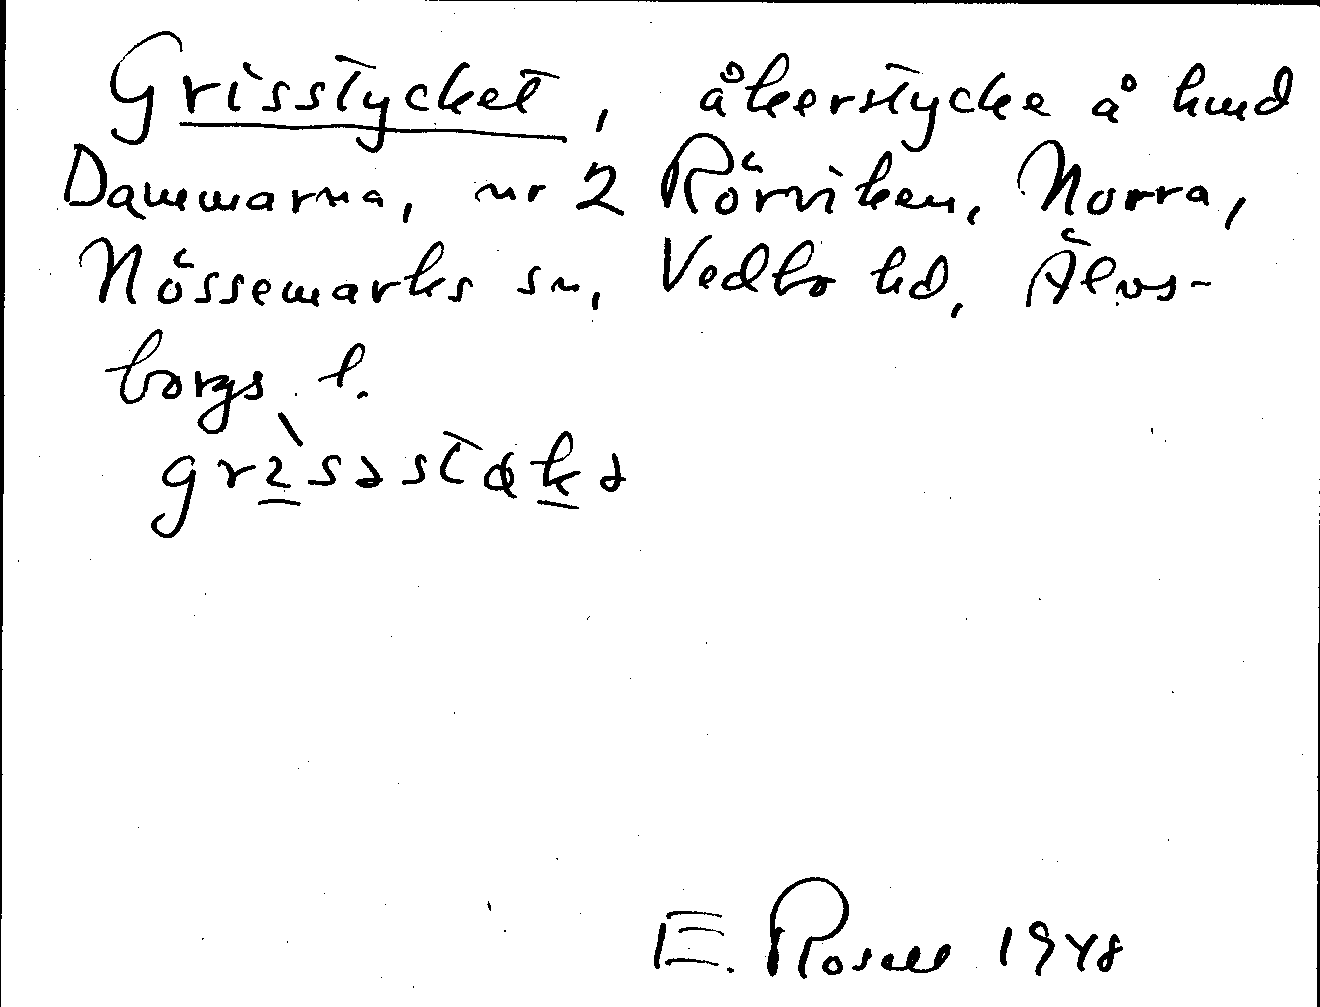 Grisstycket, åkerstycke å hmd
Dammarna, nr 2 Rörviken, Norra,
Nössemarks sn, Vedbo hd, Älvs-
borgs l.
E. Rosell 1948